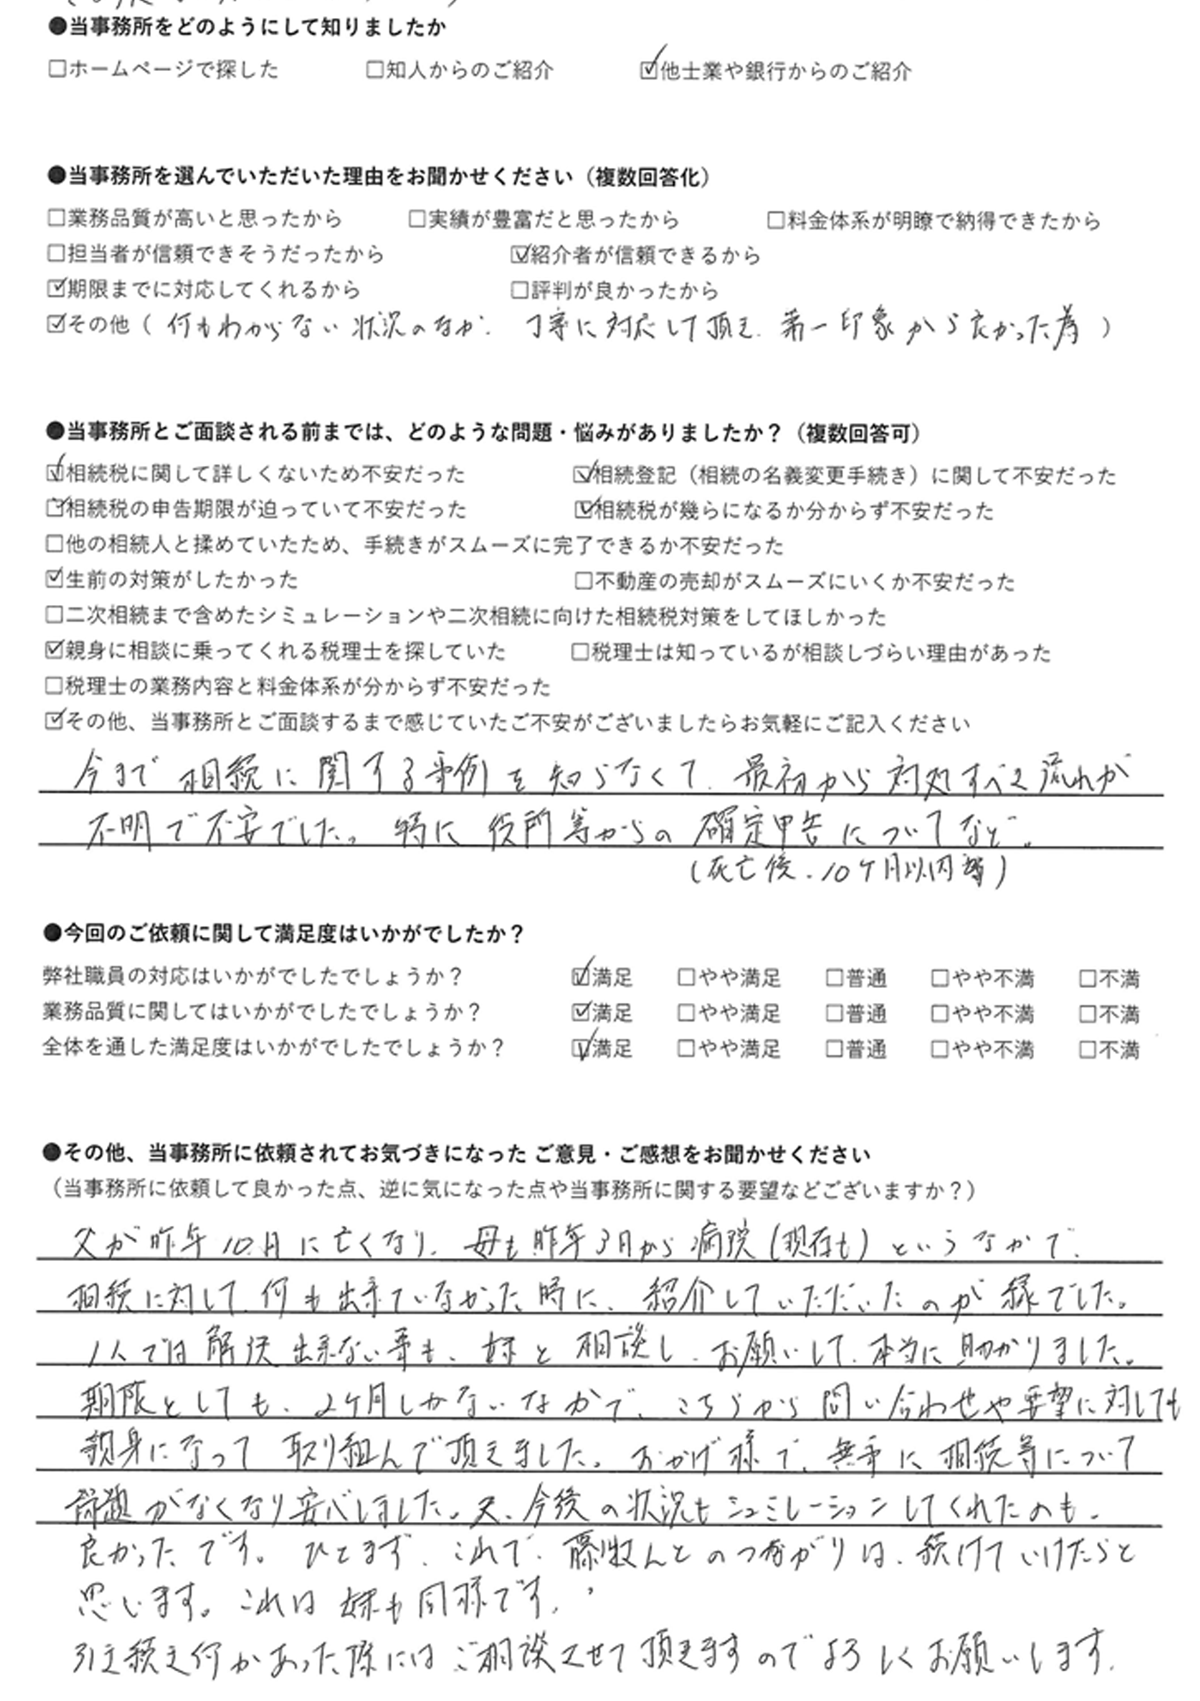 ●当事務所をどのようにして知りましたか
□ホームページで探した □知人からのご紹介 ☑他士業や銀行からのご紹介
●当事務所を選んでいただいた理由をお聞かせください（複数回答化）
□業務品質が高いと思ったから □実績が豊富だと思ったから □料金体系が明瞭で納得できたから
□担当者が信頼できそうだったから ☑紹介者が信頼できるから
☑期限までに対応してくれるから □評判が良かったから
☑その他（何もわからない状況のなか、丁寧に対応して頂き、第一印象から良かった為）
●当事務所とご面談される前までは、どのような問題・悩みがありましたか？（複数回答可）
☑相続税に関して詳しくないため不安だった ☑相続登記（相続の名義変更手続き）に関して不安だった
☑相続税の申告期限が迫っていて不安だった ☑相続税が幾らになるか分からず不安だった
□他の相続人と揉めていたため、手続きがスムーズに完了できるか不安だった
☑生前の対策がしたかった □不動産の売却がスムーズにいくか不安だった
□二次相続まで含めたシミュレーションや二次相続に向けた相続税対策をしてほしかった
☑親身に相談に乗ってくれる税理士を探していた □税理士は知っているが相談しづらい理由があった
□税理士の業務内容と料金体系が分からず不安だった
☑その他、当事務所とご面談するまで感じていたご不安がございましたらお気軽にご記入ください
今まで相続に関する事例を知らなくて、最初から対処すべき流れが
不明で不安でした。特に役所等からの確定申告についてなど。
（死亡後、10ヶ月以内等）
●今回のご依頼に関して満足度はいかがでしたか？
弊社職員の対応はいかがでしたでしょうか？ ☑満足 □やや満足 □普通 □やや不満 □不満
業務品質に関してはいかがでしたでしょうか？ ☑満足 □やや満足 □普通 □やや不満 □不満
全体を通した満足度はいかがでしたでしょうか？ ☑満足 □やや満足 □普通 □やや不満 □不満
●その他、当事務所に依頼されてお気づきになった ご意見・ご感想をお聞かせください
（当事務所に依頼して良かった点、逆に気になった点や当事務所に関する要望などございますか？）
父が昨年10月に亡くなり、母も昨年3月から病院（現在も）というなかで、
相続に対して何も出来ていなかった時に、紹介していただいたのが縁でした。
1人では解決出来ない事も、妹と相談し、お願いして、本当に助かりました。
期限としても、2ヶ月しかないなかで、こちらから問い合わせや要望に対しても
親身になって取り組んで頂きました。おかげ様で、無事に相続等について
問題がなくなり安心しました。又、今後の状況もシュミレーションしてくれたのも、
良かったです。ひとまず、これで、藤牧さんとのつながりは、続けていけたらと
思います。これは妹も同様です。
引き続き何かあった際にはご相談させて頂きますのでよろしくお願いします。